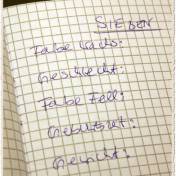 SIEBEN
Farbe Wachs:
Geschlecht:
Farbe Fell:
Geburtsort:
Gewicht: